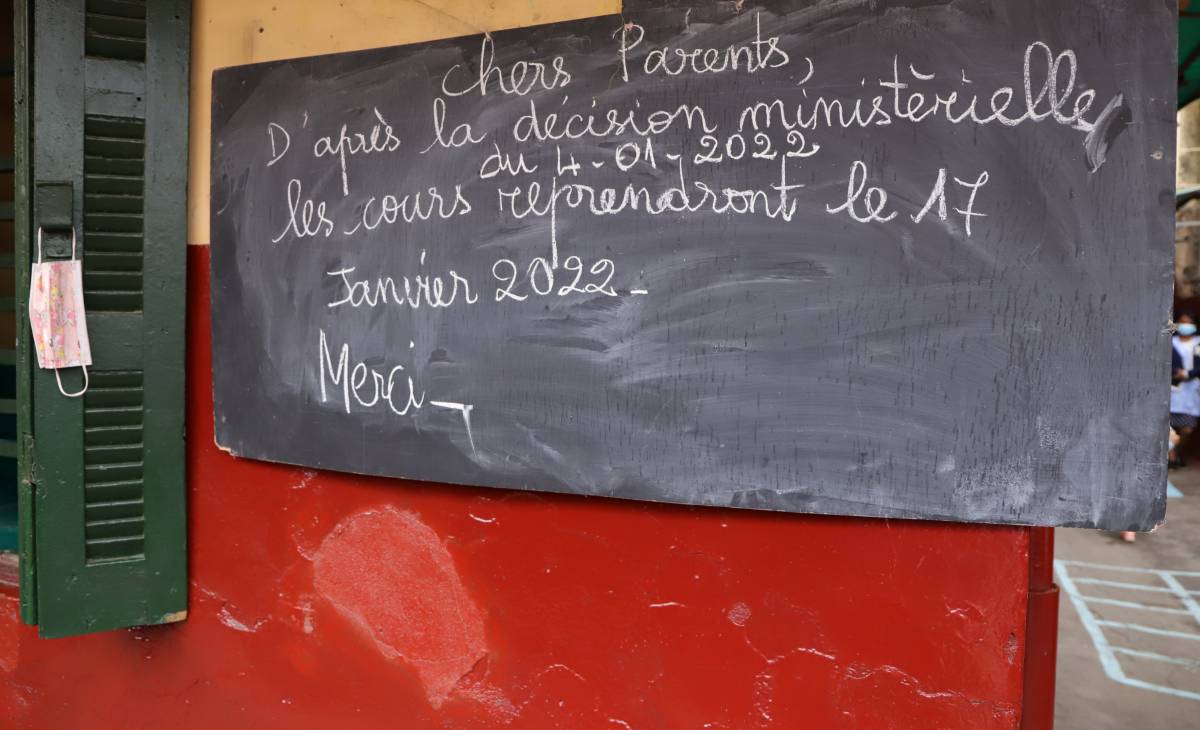 chers Parents,
D'après la décision ministèrielle
du 4-01-2022
les cours reprendront le 17
Janvier 2022_
Merci_